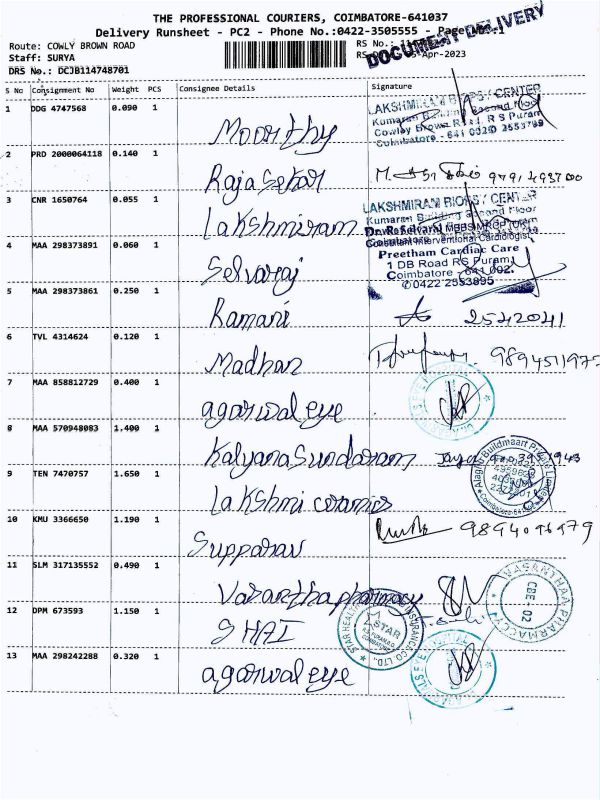 THE PROFESSIONAL COURIERS, COIMBATORE-641037
Delivery Runsheet - PC2 - Phone No.:0422-3505555 -
DOCUMENT DELIVERY
Route: COWLY BROWN ROAD
Staff: SURYA
DRS No.: DCJB114748701
RS No.:
Apr-2023
S No Consignment No Weight PCS Consignee Details Signature
1 DDG 4747568 0.090 1 Moorthy
LAKSHMIRAM BIOPS / CENTER
Kumaran Building Second Floor
Cowley Brown Road, R.S Puram
Coimbatore - 641 002
2 PRD 2000064118 0.140 1 Rajasekar
3 CNR 1650764 0.055 1 Lakshmiram
LAKSHMIRAM BIOPS / CENTER
Kumaran Building Second Floor
4 MAA 298373891 0.060 1 Selvaraj
Interventional Cardiologist
Preetham Cardiac Care
1 DB Road RS Puram
Coimbatore - 641 002.
✆0422 2553895
5 MAA 298373861 0.250 1 Ramani 2542041
6 TVL 4314624 0.120 1 Madhan
7 MAA 858812729 0.400 1 agarwal eye
8 MAA 570948083 1.400 1 Kalyana Sundaram
9 TEN 7470757 1.650 1 Lakshmi ceramics
Alaghu Buildmaart Private Limited
10 KMU 3366650 1.190 1 Supparav
11 SLM 317135552 0.490 1 Vasantha pharmacy
VASANTHA PHARMACY
CBE - 02
12 DPM 673593 1.150 1 SHAI
STAR HEALTH INSURANCE CO LTD.
STAR
13 MAA 298242288 0.320 1 agarwal eye